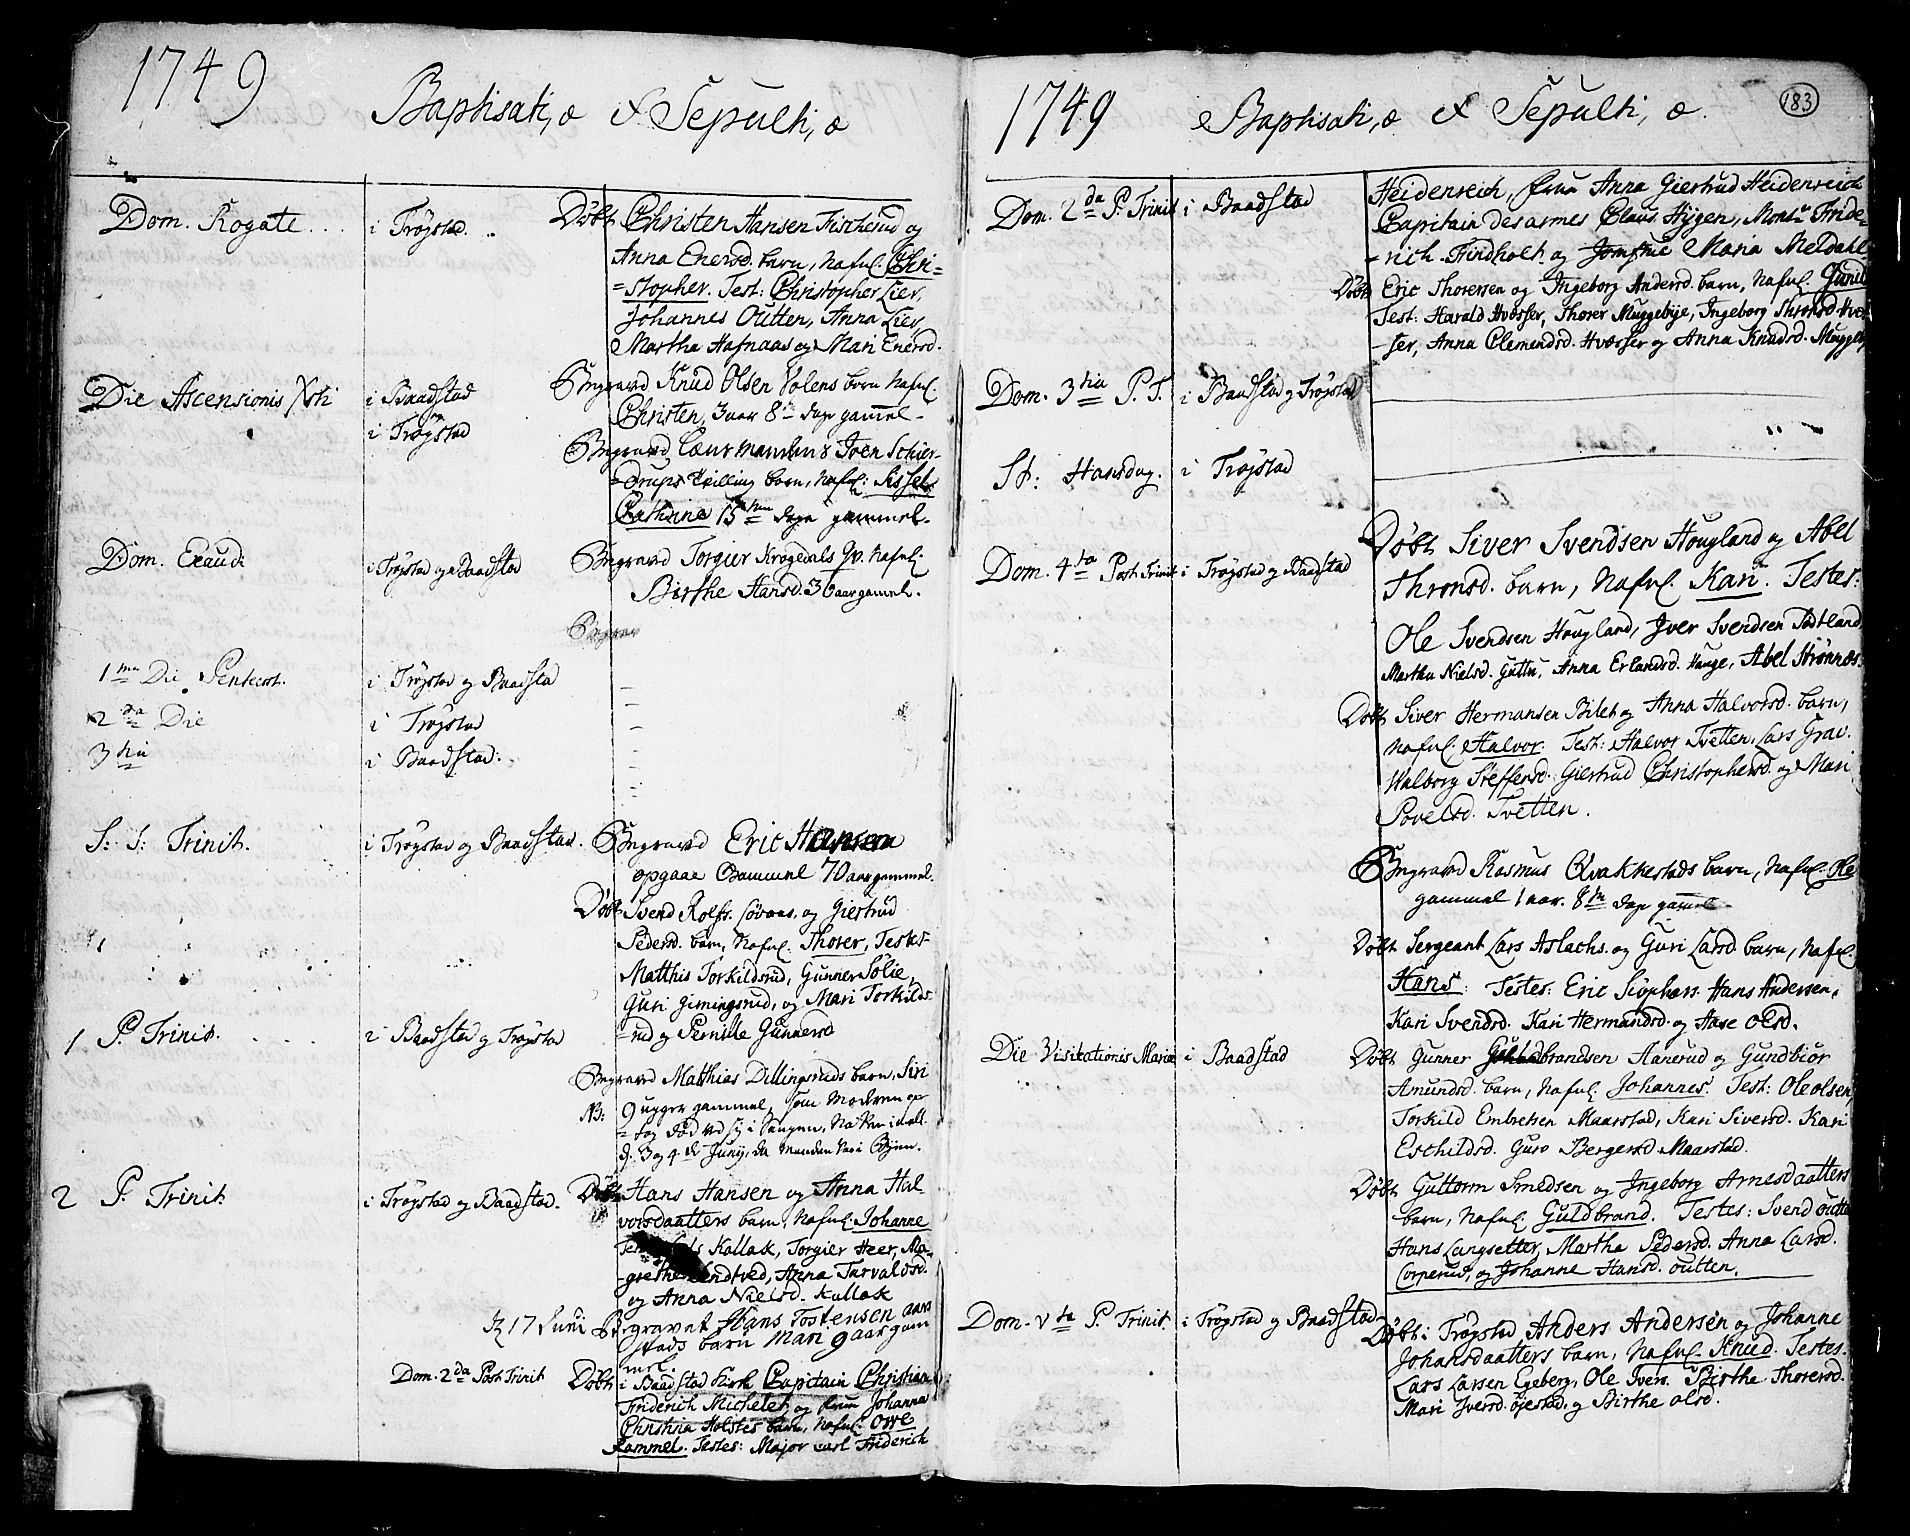 1749
Baptisati, æ & Sepulti, æ
Dom. Rogate . . .
i Trøgstad. .
Døbt Christen Hansen Fischerud og
Anna Enersd. barn, Nafnl. Chri=
=stopher. Test: Christopher Lier,
Johannes Outten, Anna Lier,
Martha Hafnaas og Mari Enersd.
Die Ascensionis Xsti
i Baadstad
og
i Trøgstad
Begravd Knud Olsen Volens barn Nafnl.
Christen, 3 aar 8 dage gammel.
Begravd Joen Schier-
=drups tvilling barn, Nafnl: Sissel
Cathrina 15 dage gammel.
Dom. Exaudi
i Trøgstad og Baadstad
Begravd Torgier Krogedals Qv. Nafnl.
Birthe Hansd. 36 aar gamel.
Begrav
1ma Die Pentecost.
i Trøgstad og Baadstad
2da Die
i Trøgstad
3tia
i Baadstad.
S: S: Trinit.
i Trøgstad og Baadstad.
Begravd Eric Hansen
opgaae Gammel 70 aar gammel.
Døbt Svend Rolfs. Løvaas, og Giertrud
Pedersd. barn, Nafnl. Thorer, Testes
Matthis Torkildsrud, Gunner Solie,
Guri Gimingsrud, og Mari Torkilds
=rud og Pernille Gunnersd
1 P. Trinit. . . . .
i Baadstad og Trøgstad
Begravd Matthias Dillingsruds barn, Siri
NB: 9 uger gammel, som Moderen
død ved sig i Sengen, Natten imell.
d. 3 og 4 de Junij, da Manden var i Byen.
2 P. Trinit
i Trøgstad og Baadstad.
Døbt Hans Hansen og Anna Hal-
vorsdaatters barn, Nafnl. Johanne
Kallak, Torgier Heer, Ma-
-grethe, Anna Tarvaldsd.
og Anna Nielsd. Kallak
17 Juni Begravet Hans Tostensen aara
stads barn Mari 9 aar gam
mel.
Dom. 2da Post Trinit
Døbt i Baadstad Kirk Capitain Christian
Friderich Michelet og Frue Johanna
Christina Holstes barn, Nafnl. Ove
Rammel. Testes: Major Carl Friderich
1749
Baptisati, æ & Sepulti, æ.
183
Dom. 2da P. Trinit
i Baadstad
Heidenreich, Frue Anna Giertrud Heidenreich
Capitain desarmes Claus Hygen, Monsr Fride-
-rich Findholt og Jomfrue Maria Meldahl
Døbt Eric Thorersen og Ingeborg Andersd. barn, Nafnl. Gunild
Test: Harald Hvæsser, Thorer Muggebye, Ingeborg Thronsd. Hvæs
-ser, Anna Clemendsd. Hvæsser og Anna Knudsd. Muggeby
Dom. 3tia P. T.
i Baadstad og Trøgstad
St: Hansdag.
i Trøgstad
Dom. 4ta Post Trinit
i Trøgstad og Baadstad
Døbt Siver Svendsen Hougland og Abel
Thronsd. barn, Nafnl. Kari. Testes:
Ole Svendsen Hougland, Iver Svendsen Sadtland
Martha Nielsd. Guttu, Anna Erlandsd. Hauge, Abel Strønnæs.
Døbt Siver Hermansen Bilet og Anna Halvorsd. barn,
Nafnl. Halvor. Test: Halvor Tvetten, Lars Grav.
Walborg Steffersd. Giertrud Christophersd. og Mari
Povelsd. Tvetten.
Begravd Rasmus Qvakkestads barn, Nafnl. Ole
gammel 1 aar. 8 dage gammel
Døbt Sergeant Lars Aslachs. og Guri Larsd barn, Nafnl.
Hans. Testes: Eric Siophers. Hans Andersen,
Kari Svendsd. Kari Hermandsd. og Aase Olsd.
Die Visitationis Mariæ
i Baadstad
Døbt Gunner Guldbrandsen Aanerud og Gundbiør
Amundsd. barn, Nafnl. Johannes. Test: Ole Olsen,
Torkild Embretsen Maarstad, Kari Siversd. Kari
Eschildsd. Guro Bergersd. Maarstad.
Døbt Guttorm Smedsen og Ingeborg Arnesdaatters
barn, Nafnl. Guldbrand. Testes: Svend Outte
Hans Langsetter, Martha Pedersd. Anna Larsd.
Corperud, og Johanne Hansd. Outten.
Dom. Vta P. Trinit.
i Trøgstad og Baadstad
Døbt i Trøgstad Anders Andersen og Johanne
Johansdaatters barn, Nafnl. Knud. Testes.
Lars Larsen Egeberg, Ole Ivers. Birthe Thorersd.
Mari Iversd. Øiestad, og Birthe Olsd.